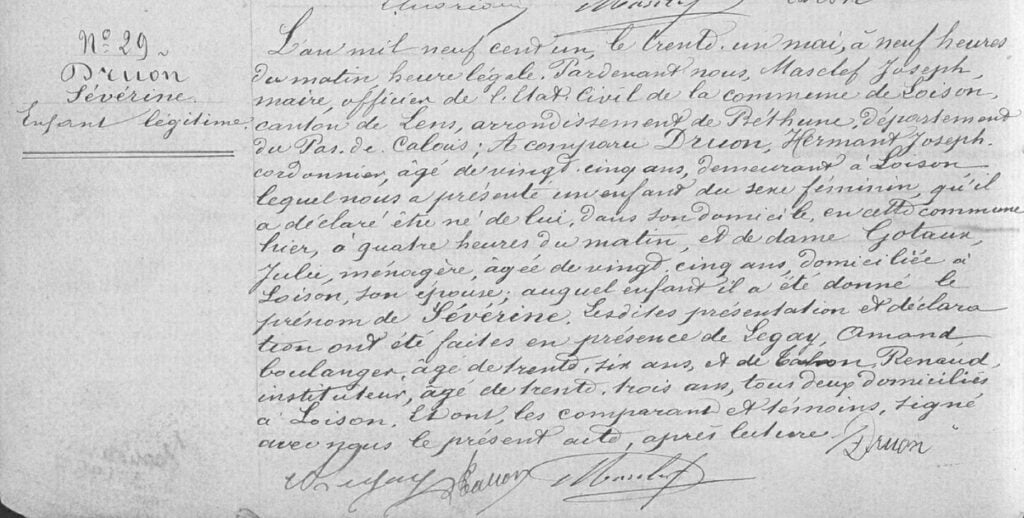 Nº 29.
Druon
Séverine.
Enfant légitime.
L'an mil neuf cent un, le trente-un mai, à neuf heures
du matin heure légale. Pardevant nous, Masclef Joseph,
maire, officier de l'Etat-Civil de la commune de Loison,
canton de Lens, arrondissement de Béthune, département
du Pas-de-Calais; A comparu Druon, Hermant Joseph.
cordonnier, âgé de vingt-cinq ans, demeurant à Loison
lequel nous a présenté un enfant du sexe féminin, qu'il
a déclaré être né de lui, dans son domicile, en cette commune
hier, à quatre heures du matin, et de dame Gotaux,
Julie, ménagère, âgée de vingt-cinq ans, domiciliée à
Loison, son épouse; auquel enfant il a été donné le
prénom de Séverine. Lesdites présentation et déclara
tion ont été faites en présence de Legay, Amand,
boulanger, âgé de trente-six ans, et de Renaud,
instituteur, âgé de trente-trois ans, tous deux domiciliés
à Loison. Et ont, les comparant et témoins, signé
avec nous le présent acte, après lecture.
Druon
Legay
Masclef